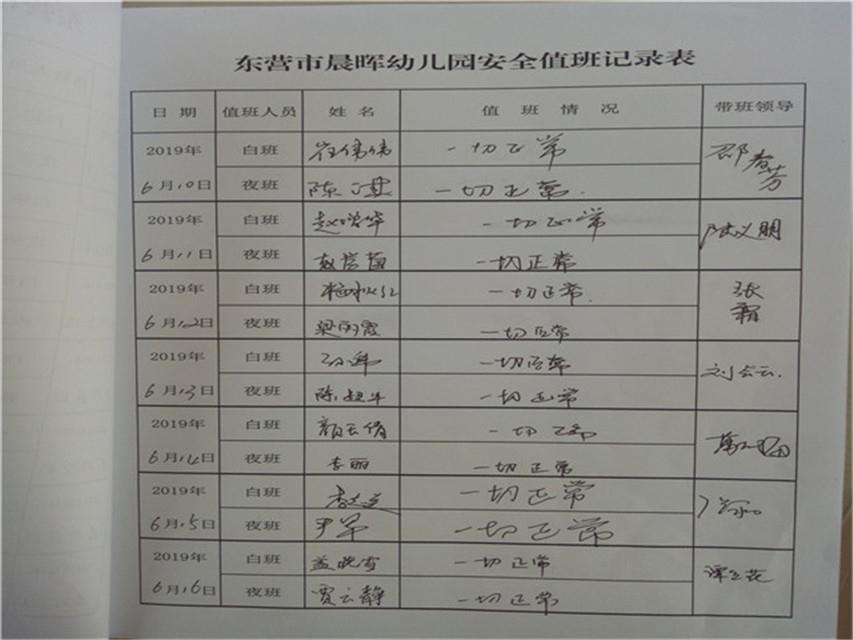 东营市晨晖幼儿园安全值班记录表
日期 值班人员 姓名 值班情况 带班领导
2019年 白班 崔伟伟 一切正常 邵春芳
6月10日 夜班 陈 一切正常.
2019年 白班 赵 华 一切正常 陆义朋
6月11日 夜班 赵 一切正常
2019年 白班 一切正常. 张霜
6月12日 夜班 梁丽霞 一切正常
2019年 白班 一切正常 刘会云.
6月13日 夜班 陈 一切正常
2019年 白班 颜云倩 一切正常
6月14日 夜班 李丽 一切正常
2019年 白班 李 一切正常
6月15日 夜班 尹华 一切正常
2019年 白班 孟晓雪 一切正常 谭兰花
6月16日 夜班 贾云静 一切正常